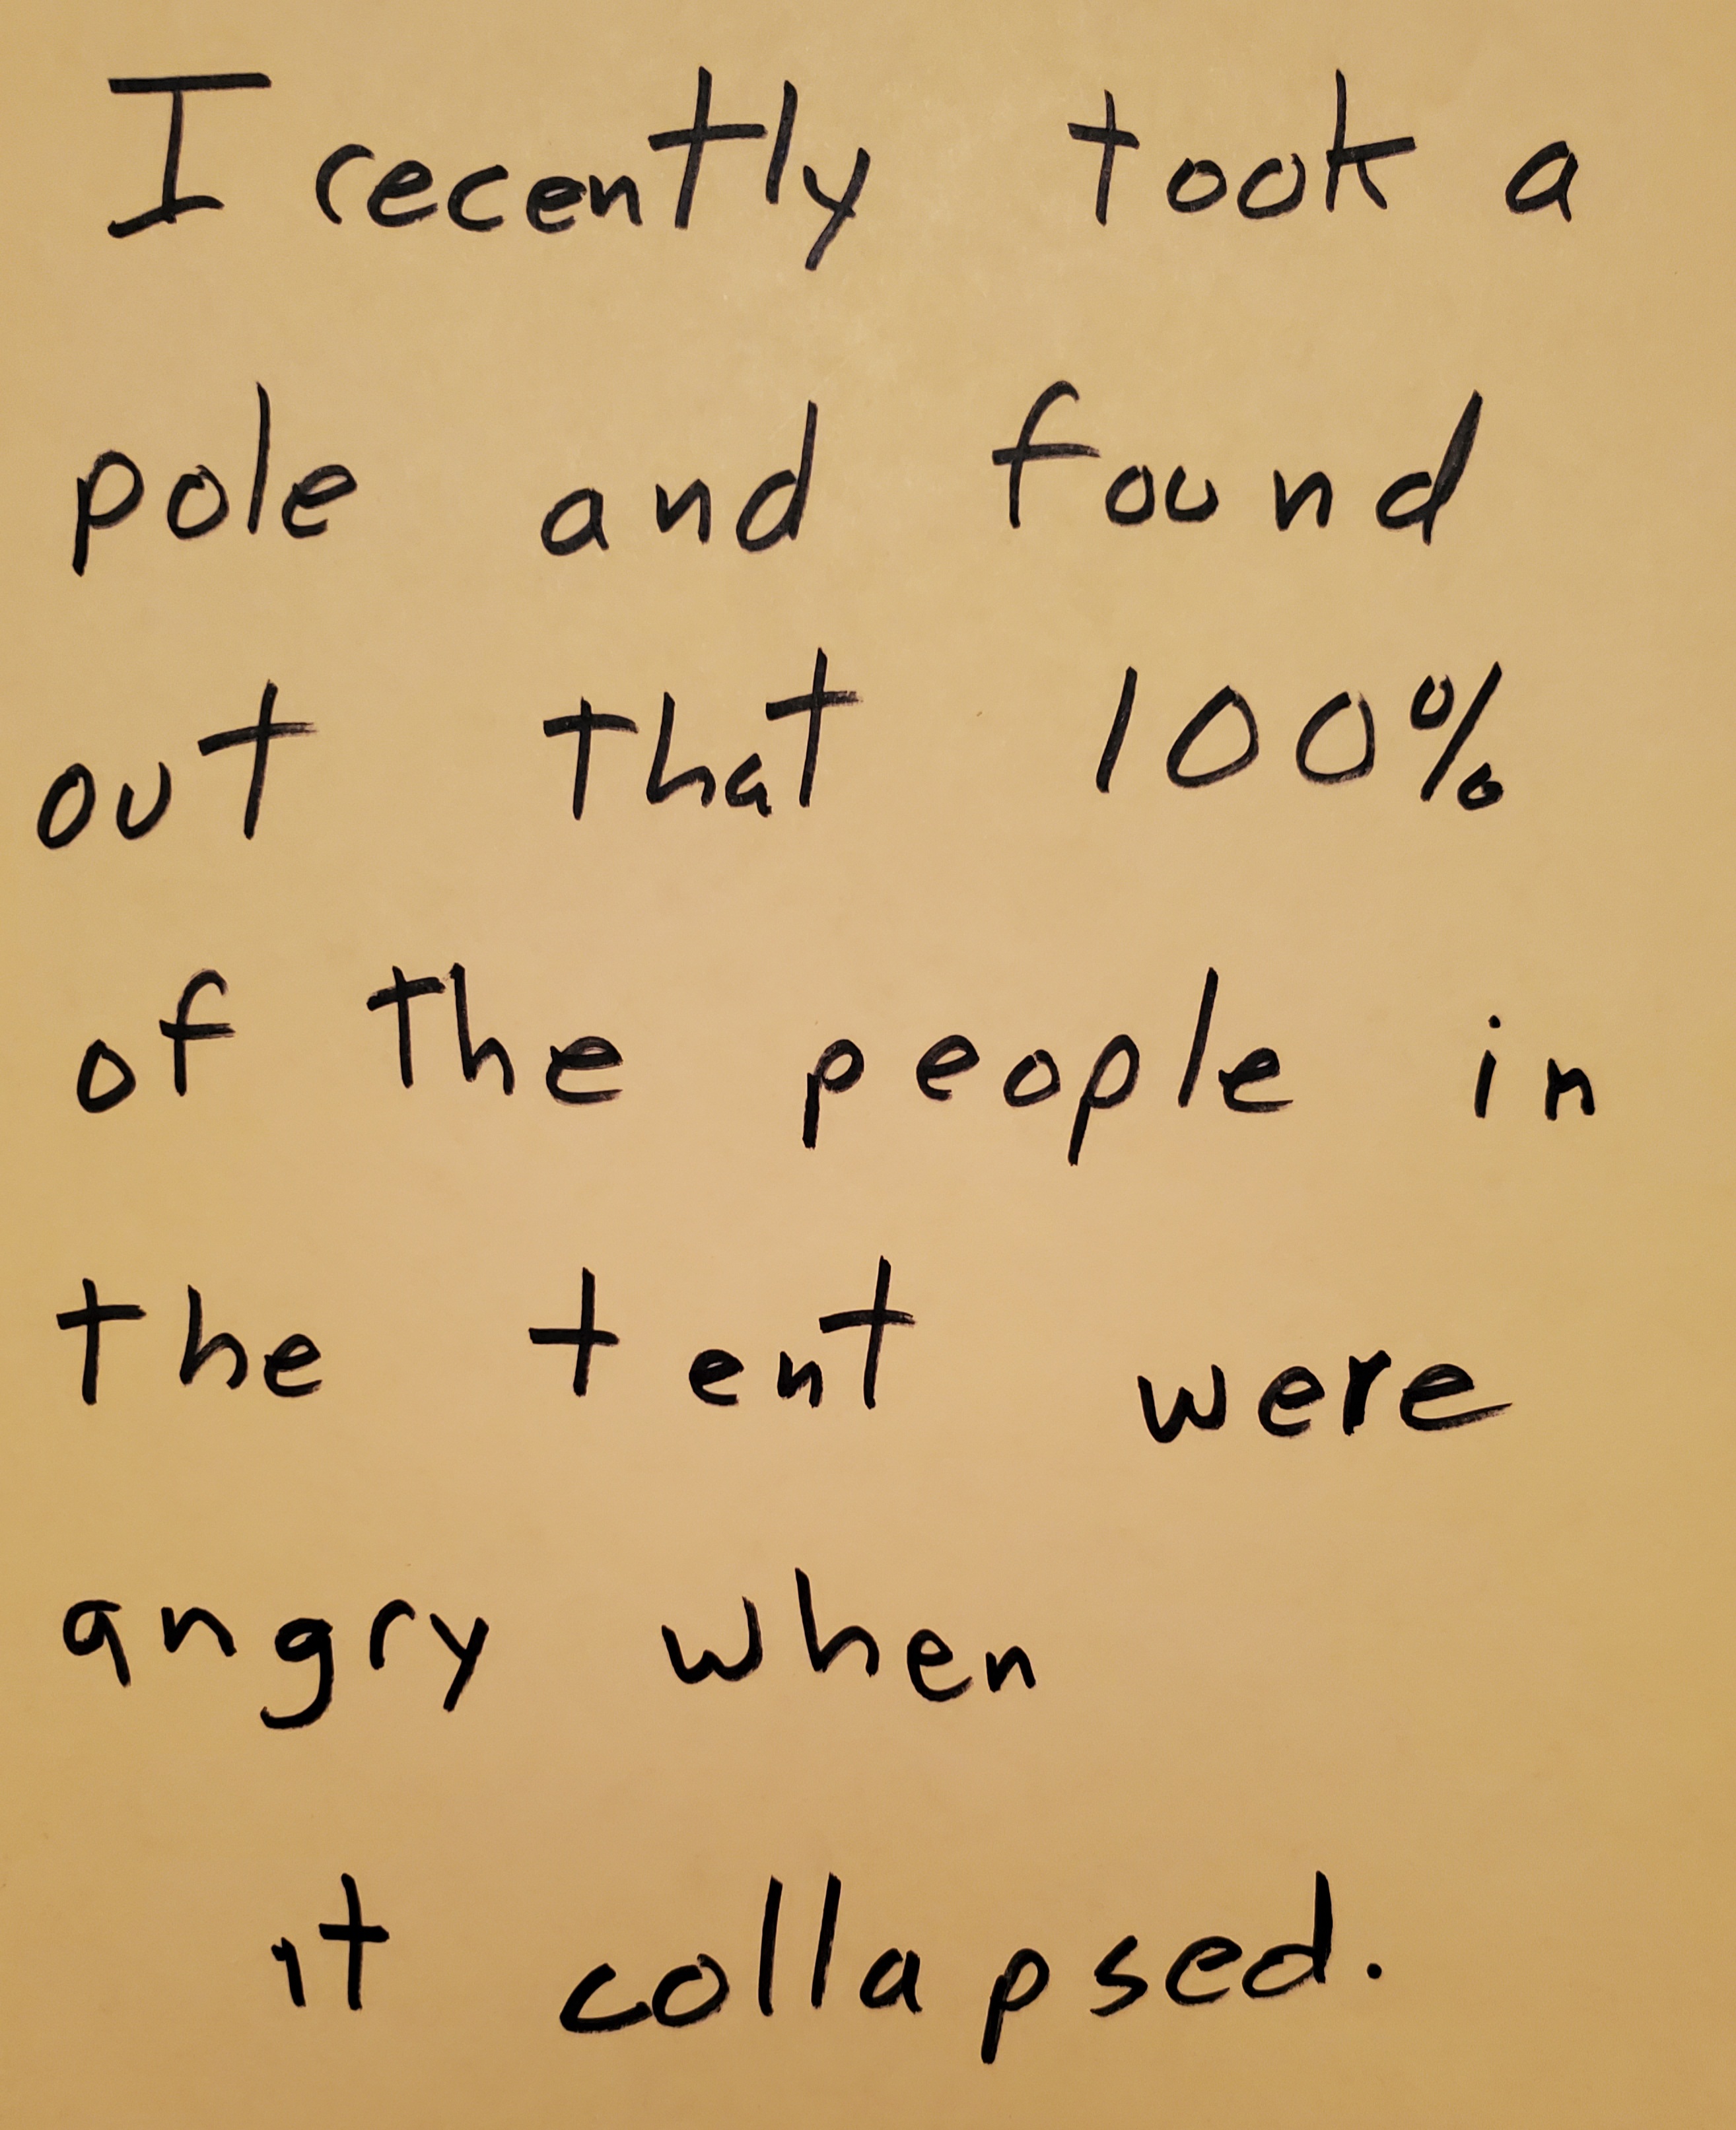 I recently took a
pole and found
out that 100%
of the people in
the tent were
angry when
it collapsed.